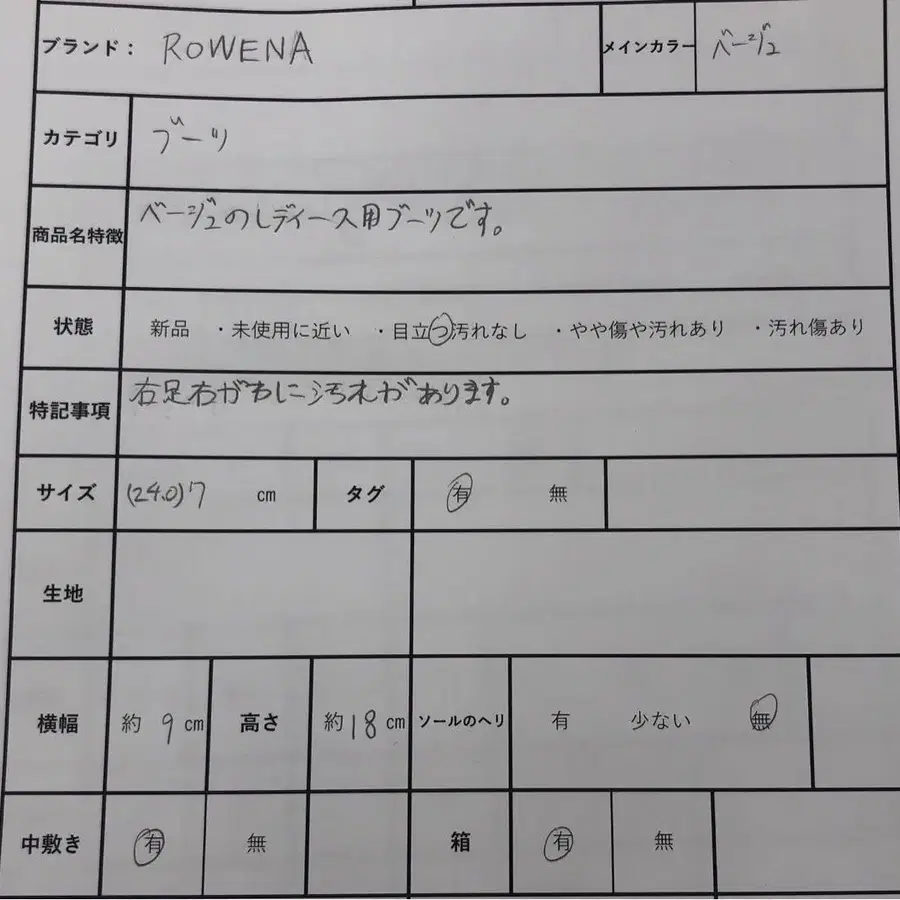 ブランド： ROWENA メインカラー ベージュ
カテゴリ ブーツ
商品名特徴 ベージュのレディース用ブーツです。
状態 新品 ・未使用に近い ・目立つ汚れなし ・やや傷や汚れあり ・汚れ傷あり
特記事項 右足右がわに汚れがあります。
サイズ (24.0)7 cm タグ 有 無
生地
横幅 約 9 cm 高さ 約 18 cm ソールのヘリ 有 少ない 無
中敷き 有 無 箱 有 無